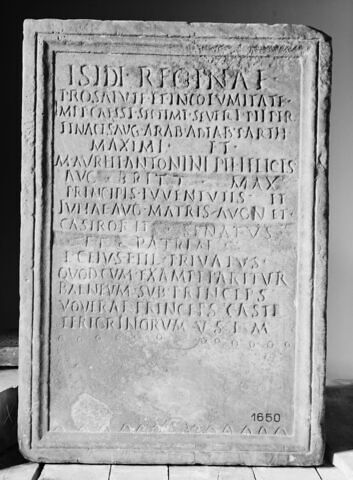 ISIDI REGINAE
PRO SALVTE ET INCOLVMITATE
IMP CAES L SEPTIMI SEVERI PII PER
TINACIS AVG ARAB ADIAB PARTH
MAXIMI ET
M AVRELI ANTONINI PII FELICIS
AVG BRITT MAX
PRINCIPIS IVVENTVTIS ET
IVLIAE AVG MATRIS AVG N ET
CASTROR ET SENATVS
ET PATRIAE
L
QVOD CVM
SVB PRINCEPS
VOVERAT PRINCEPS CASTR
PEREGRINORVM V S L M
1650